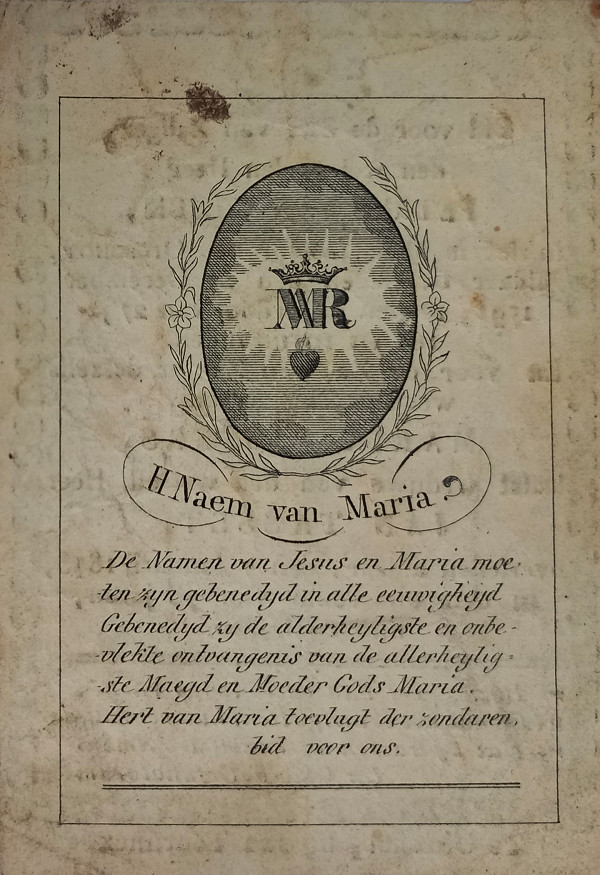 MR
H. Naem van Maria
De Namen van Jesus en Maria moe-
ten zyn gebenedyd in alle eeuwigheyd
Gebenedyd zy de alderheyligste en onbe-
-vlekte ontvangenis van de allerheylig-
-ste Maegd en Moeder Gods Maria.
Hert van Maria toevlugt der zondaren,
bid voor ons.